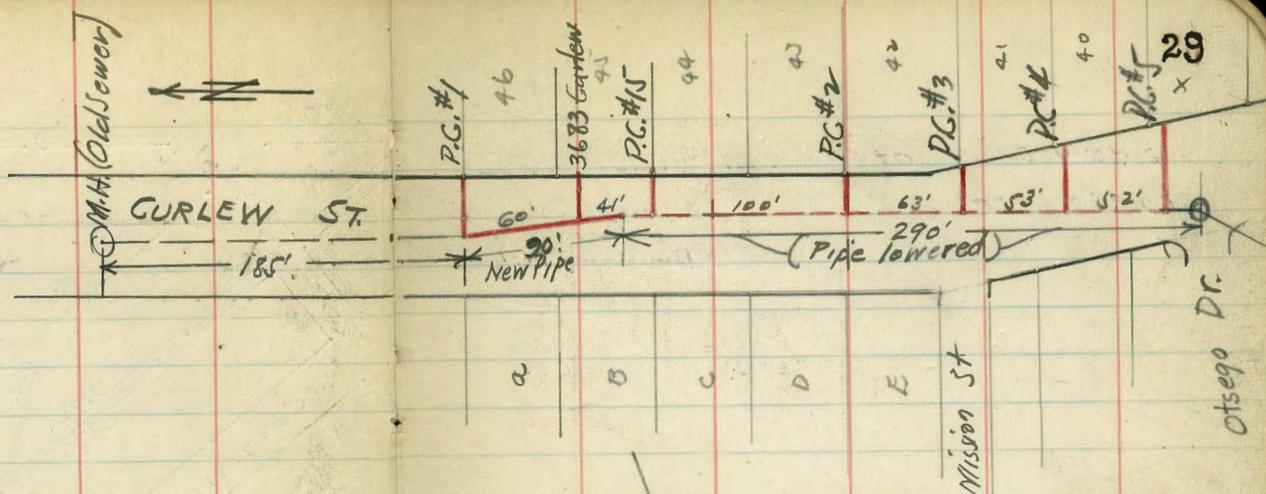 29
M.H. (Old Sewer)
N
P.C. #1
46
3683 Curlew
45
P.C. #15
44
43
P.C. #2
42
P.C. #3
41
P.C. #4
40
P.C. #5
x
CURLEW ST.
60'
41'
100'
63'
53'
52'
185'
90'
New Pipe
290'
(Pipe lowered)
a
B
C
D
E
Mission St
Otsego Dr.